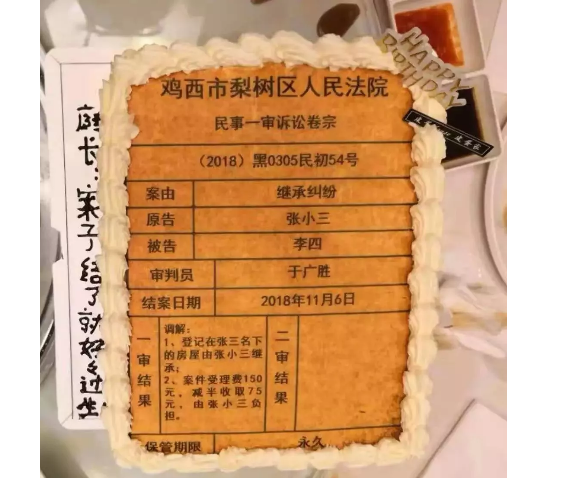 鸡西市梨树区人民法院
民事一审诉讼卷宗
（2018）黑0305民初54号
案由 继承纠纷
原告 张小三
被告 李四
审判员 于广胜
结案日期 2018年11月6日
一审结果
调解：
1、登记在张三名下
的房屋由张小三继
承；
2、案件受理费150
元，减半收取75
元，由张小三负
担。
二审结果
保管期限 永久
庭长：案子结了就好好过生
HAPPY
BIRTHDAY